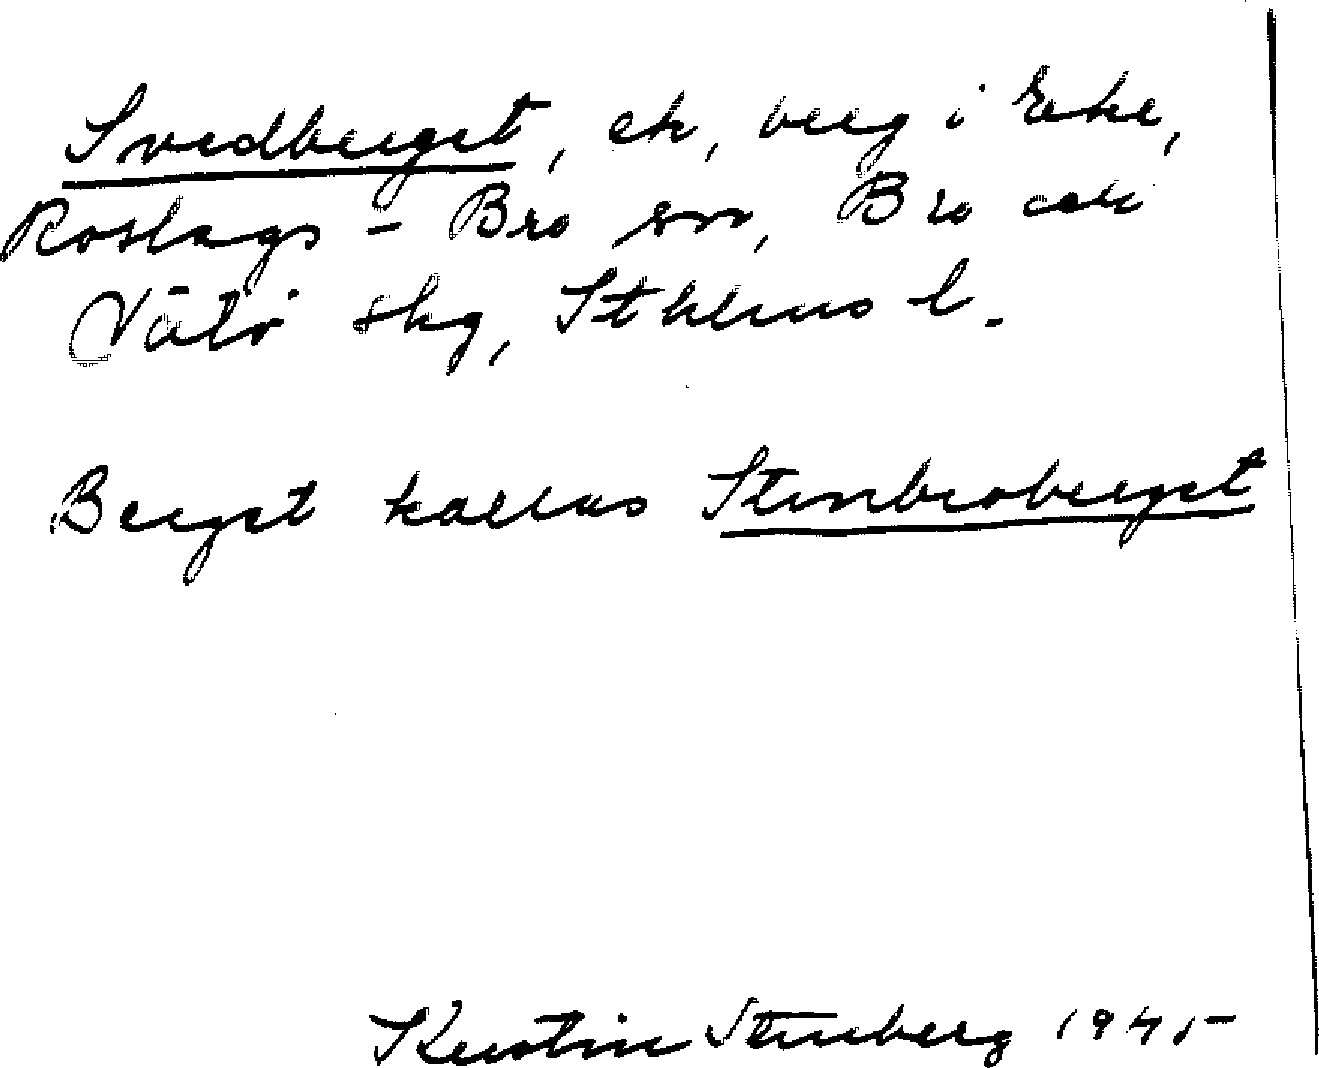 Svedberget, ek, berg i Eke,
Roslags-Bro sn, Bro och
Vätö skg, Sthlms l.
Berget kallas Stenbroberget
Kerstin Stenberg 1945